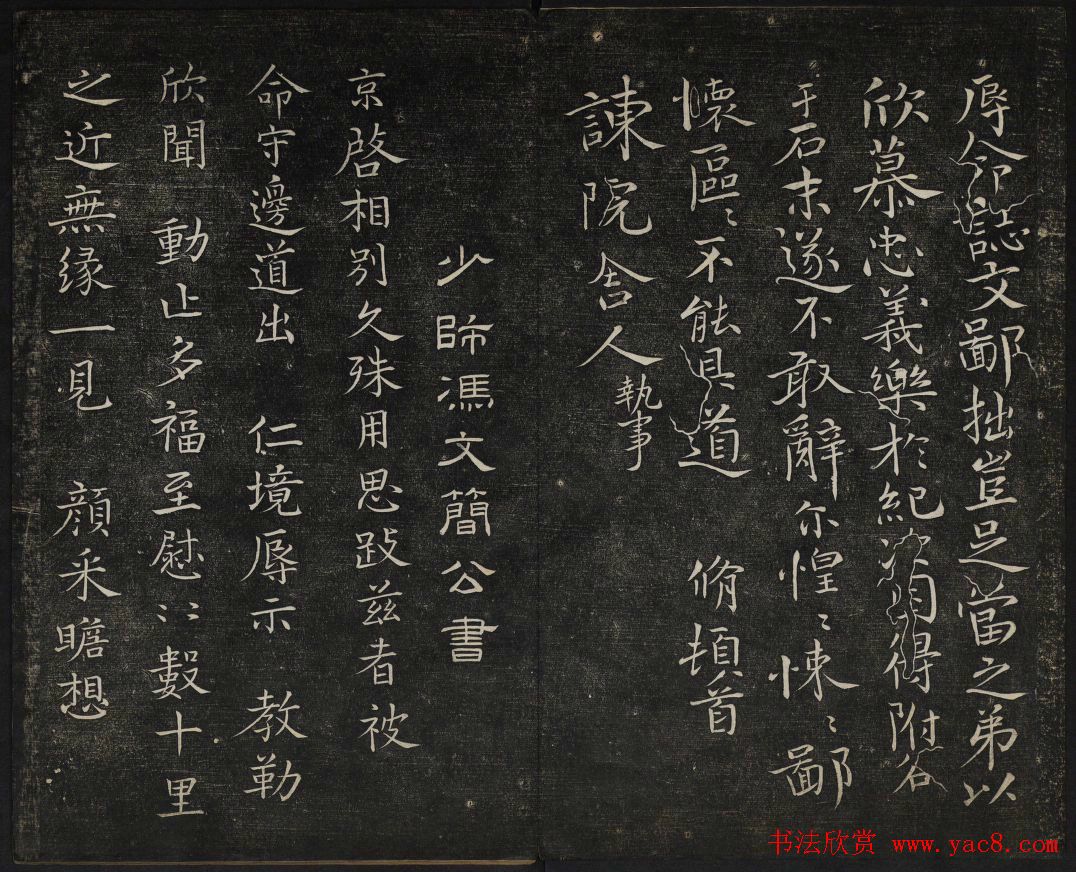 辱命誌文鄙拙豈足當之弟以
欣慕忠義樂於紀次因得附名
于石末遂不敢辭尔惶〻悚〻鄙
懷區〻不能具道 脩頓首
諫院舍人執事
少師馮文簡公書
京啓相別久殊用思跂兹者被
命守邊道出 仁境辱示 教勒
欣聞 動止多福至慰〻數十里
之近無緣一見 顔采瞻想
书法欣赏 www.yac8.com